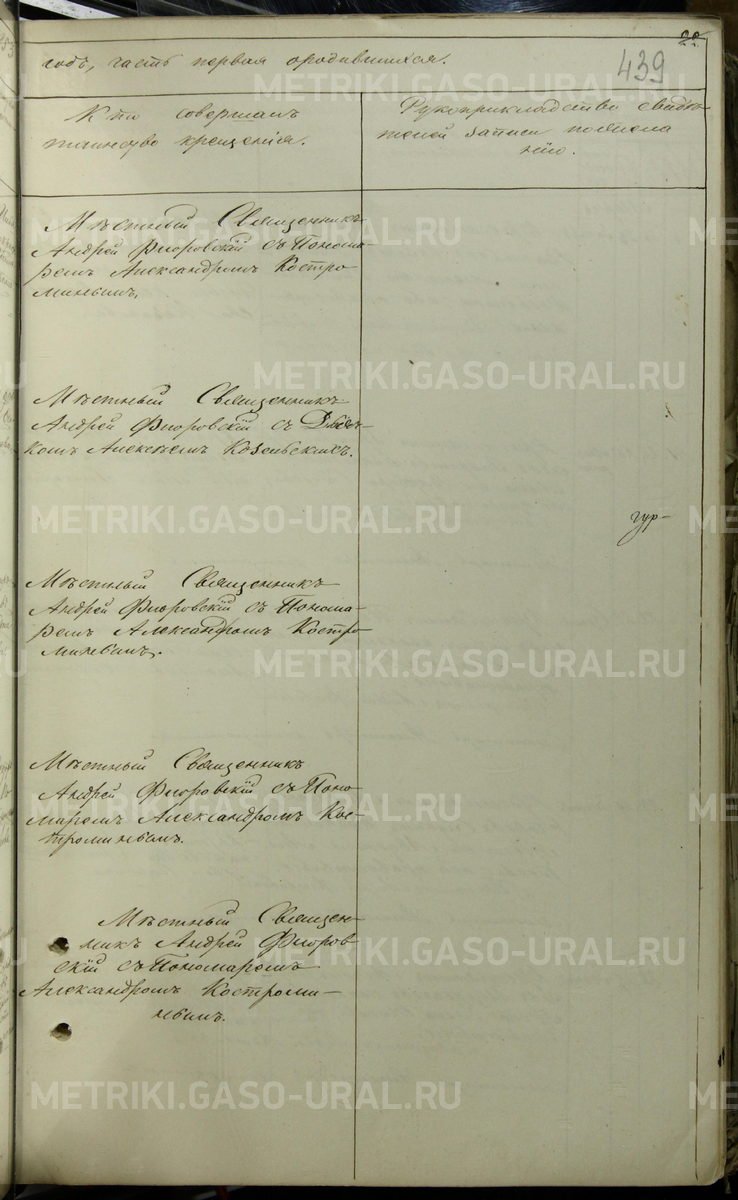 22
439
годъ, часть первая ородившихся.
Кто совершалъ
таинство крещенія.
Рукоприкладство свидѣ-
телей записи пожела
нію.
Мѣстный Священникъ
Андрей Флоровскій съ Понома-
ремъ Александромъ Костро
миннымъ.
Мѣстный Священникъ
Андрей Флоровскій съ Дьяч-
комъ Алексѣемъ Козельскихъ.
гур-
Мѣстный Священникъ
Андрей Флоровскій съ Понома-
ремъ Александромъ Костро
миннымъ.
Мѣстный Священникъ
Андрей Флоровскій съ Поно
маремъ Александромъ Кос-
троминнымъ.
Мѣстный Священ-
никъ Андрей Флоров
скій съ Пономаромъ
Александромъ Костроми-
ннымъ.
METRIKI.GASO-URAL.RU